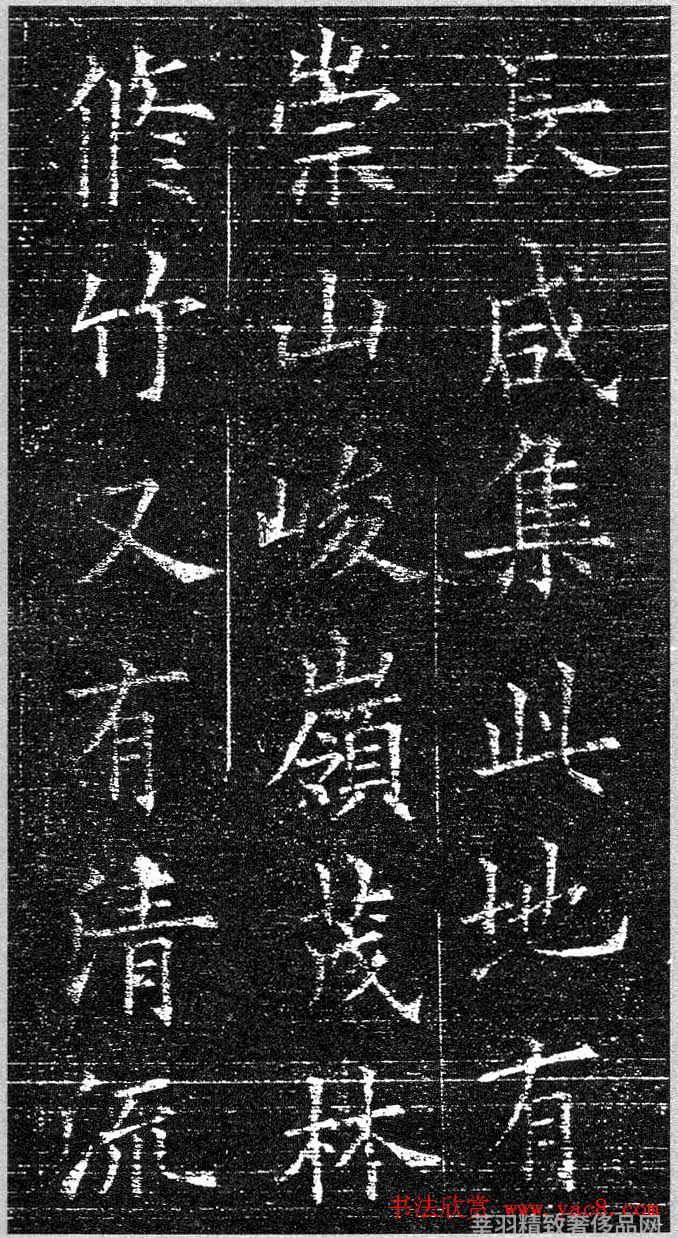 長咸集此地有
崇山峻嶺茂林
脩竹又有清流
书法欣赏 www.yac8.com
莘羽精致奢侈品网